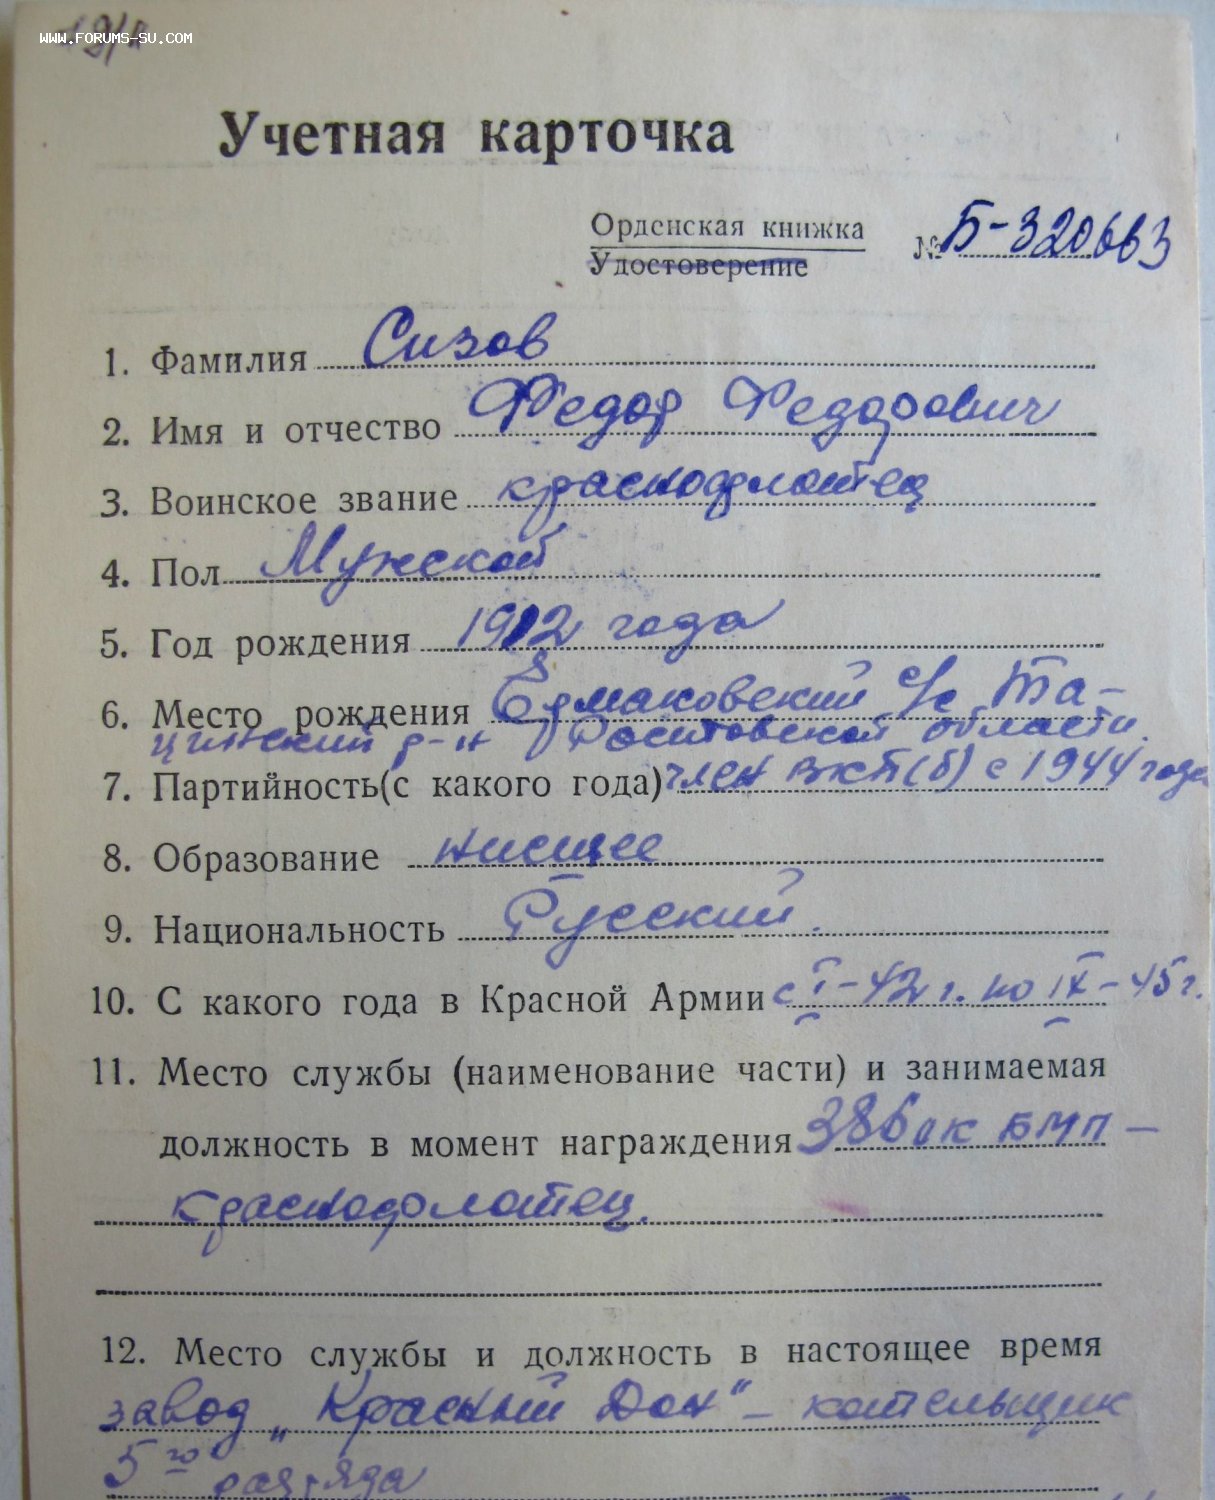 WWW.FORUMS-SU.COM
Учетная карточка
Орденская книжка № Б-320663
Удостоверение
1. Фамилия Сизов
2. Имя и отчество Федор Федорович
3. Воинское звание краснофлотец
4. Пол Мужской
5. Год рождения 1912 года
6. Место рождения Ермаковский с/с Та-
цинский р-н Ростовской области.
7. Партийность(с какого года) член ВКП(б) с 1944 года
8. Образование низшее
9. Национальность Русский.
10. С какого года в Красной Армии с I-42 г. по IX-45 г.
11. Место службы (наименование части) и занимаемая
должность в момент награждения 386 ок БМП –
краснофлотец.
12. Место службы и должность в настоящее время
завод „Красный Дон" – котельщик
5го разряда